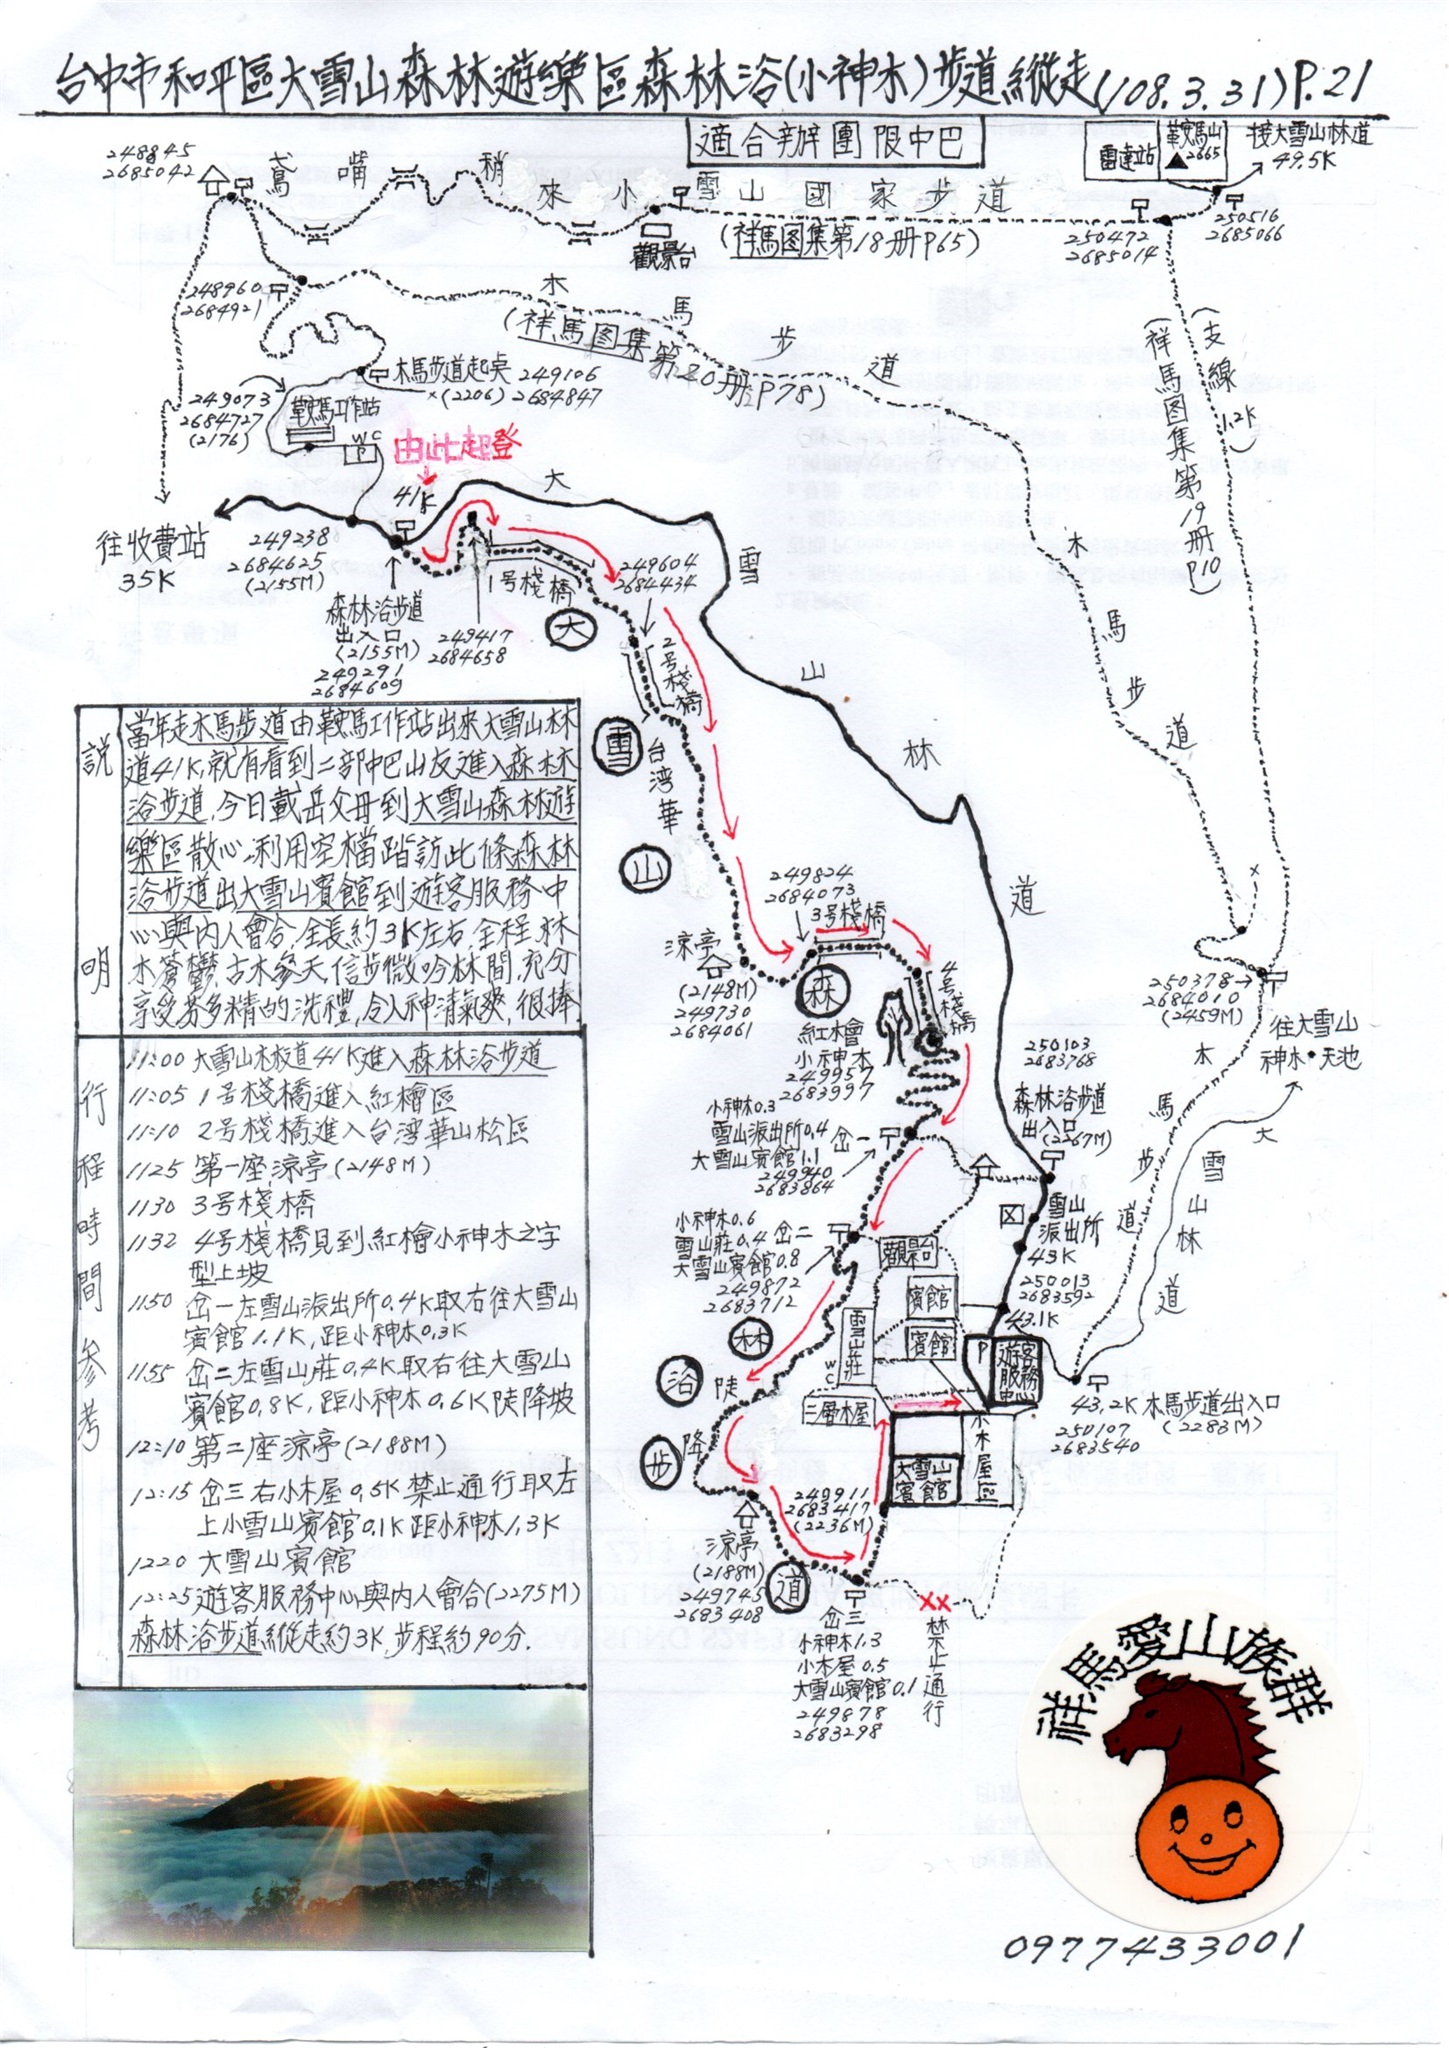 台中市和平區大雪山森林遊樂區森林浴(小神木)步道縱走(108.3.31)P.21
適合辦團限中巴
雷達站
鞍馬山
▲2665
接大雪山林道
49.5K
248845
2685042
鳶嘴稍來小雪山國家步道
觀景台
(祥馬图集第18册P65)
250472
2685014
250516
2685066
248960
2684921
木馬步道
(祥馬图集第20册P78)
支線1.2K
(祥馬图集第19册P10)
木馬步道起點 249106
×(2206) 2684847
249073
2684727
(2176)
鞍馬工作站
WC
由此起登
41K
往收費站
35K
249238
2684625
(2155M)
森林浴步道
出入口
(2155M)
249291
2684609
1号棧橋
249417
2684658
249604
2684434
2号棧橋
大雪山林道
木馬步道
大雪山森林浴步道
台湾華山
說明
當年走木馬步道由鞍馬工作站出來大雪山林
道41K,就有看到二部中巴山友進入森林
浴步道,今日載岳父母到大雪山森林遊
樂區散心,利用空檔踏訪此條森林
浴步道出大雪山賓館到遊客服務中
心與內人會合,全長約3K左右,全程林
木蒼鬱,古木參天,信步微吟林間,充分
享受芬多精的洗禮,令人神清氣爽,很捧.
行程時間參考
11:00 大雪山林道41K進入森林浴步道
11:05 1号棧橋進入紅檜區
11:10 2号棧橋進入台湾華山松區
1125 第一座涼亭(2148M)
1130 3号棧橋
1132 4号棧橋見到紅檜小神木之字
型上坡
1150 岔一左雪山派出所0.4K取右往大雪山
賓館1.1K,距小神木0.3K
1155 岔二左雪山莊0.4K取右往大雪山
賓館0.8K,距小神木0.6K陡降坡
12:10 第二座涼亭(2188M)
12:15 岔三右小木屋0.5K禁止通行取左
上小雪山賓館0.1K距小神木1.3K
1220 大雪山賓館
12:25 遊客服務中心與內人會合(2275M)
森林浴步道縱走約3K步程約90分.
249824
2684073
3号棧橋
涼亭
(2148M)
249730
2684061
4号棧橋
紅檜
小神木
249957
2683997
250103
2683768
森林浴步道
出入口
(2267M)
250378
2684010
(2459M)
往大雪山
神木·天池
木馬步道
大雪山林道
小神木0.3
雪山派出所0.4
大雪山賓館1.1
岔一
249940
2683864
雪山
派出所
43K
小神木0.6
雪山莊0.4
大雪山賓館0.8
岔二
249872
2683712
觀景台
賓館
賓館
雪山莊
WC
三層木屋
250013
2683592
43.1K
P
遊客服務中心
小木屋區
大雪山
賓館
43.2K木馬步道出入口
250107
2683540
(2283M)
陡降
249911
2683417
(2236M)
涼亭
(2188M)
249745
2683408
岔三
小神木1.3
小木屋0.5
大雪山賓館0.1
249878
2683298
××
禁止通行
祥馬愛山族群
0977433001